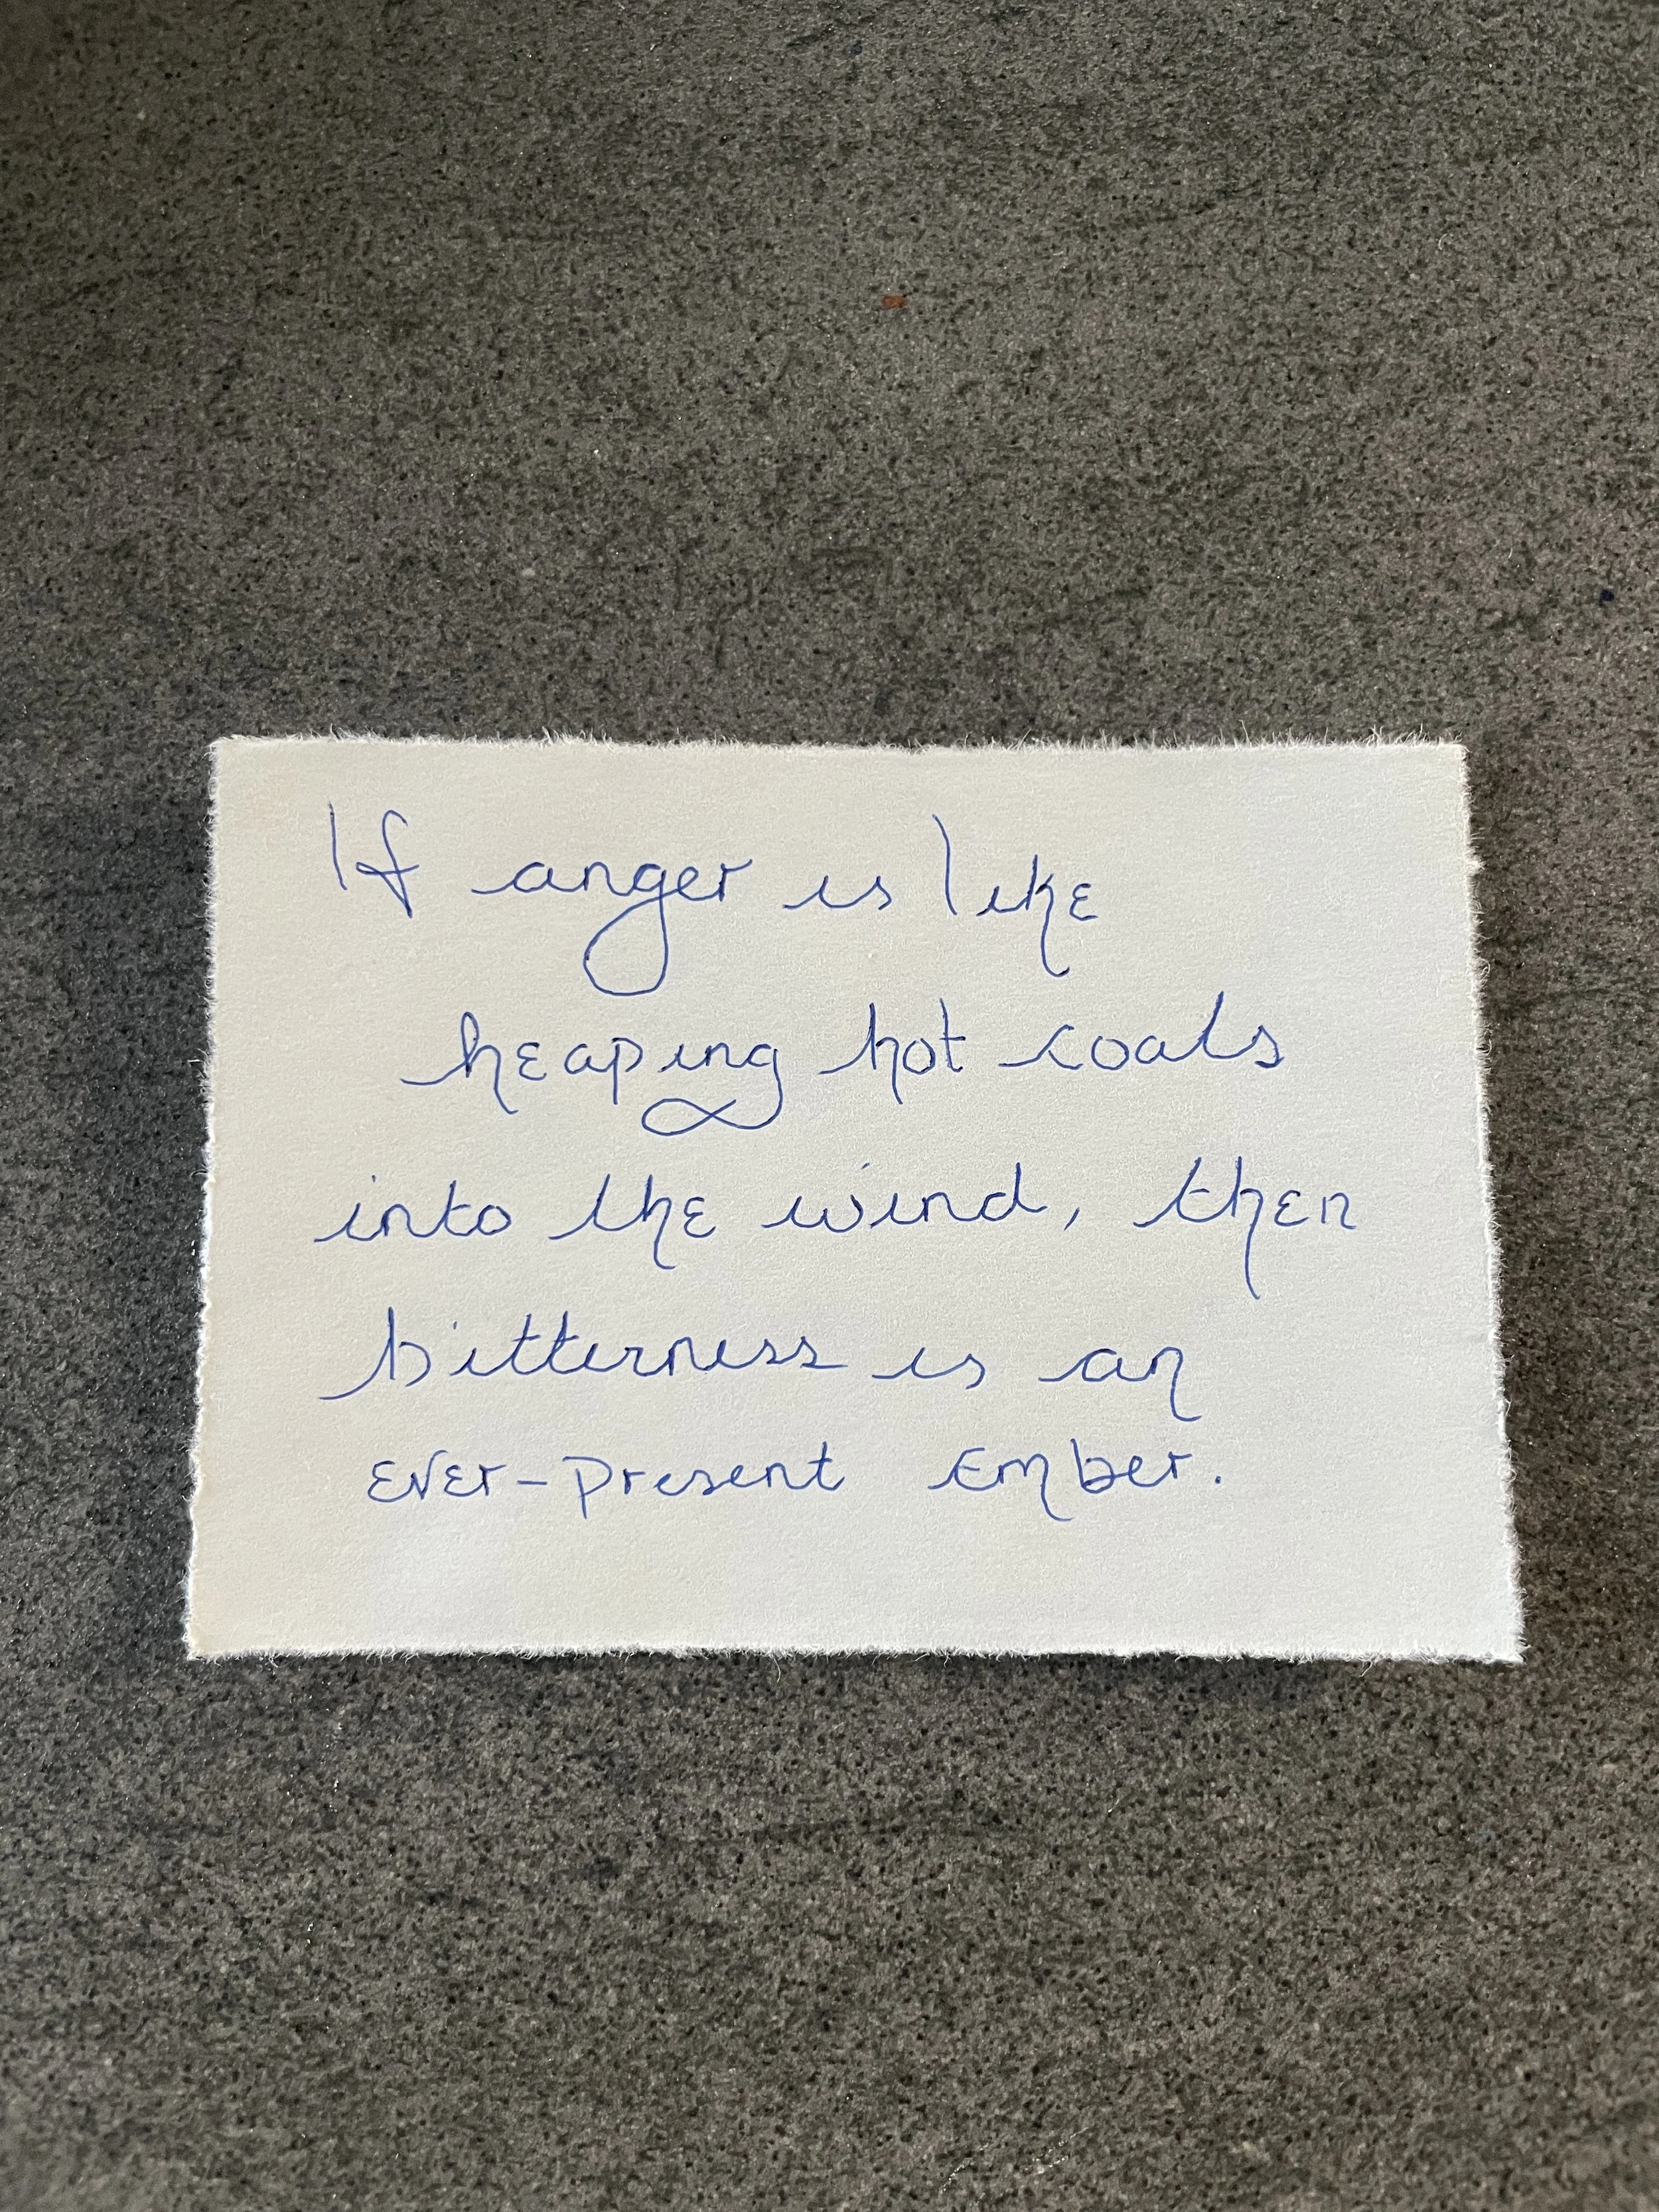 If anger is like
heaping hot coals
into the wind, then
bitterness is an
ever-present ember.